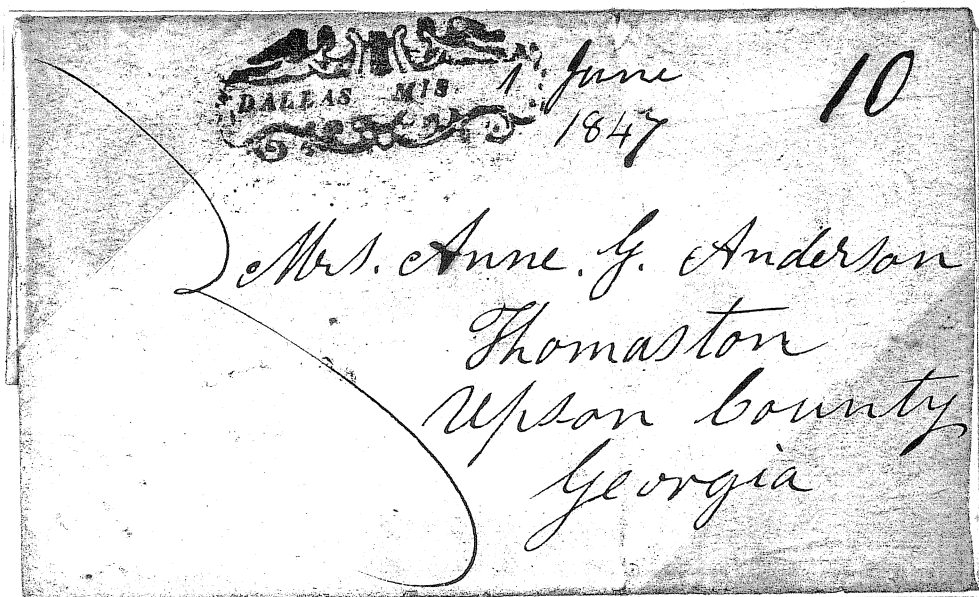 DALLAS MIS. 1. June
1847
10
Mrs. Anne. G. Anderson
Thomaston
Upson County
Georgia